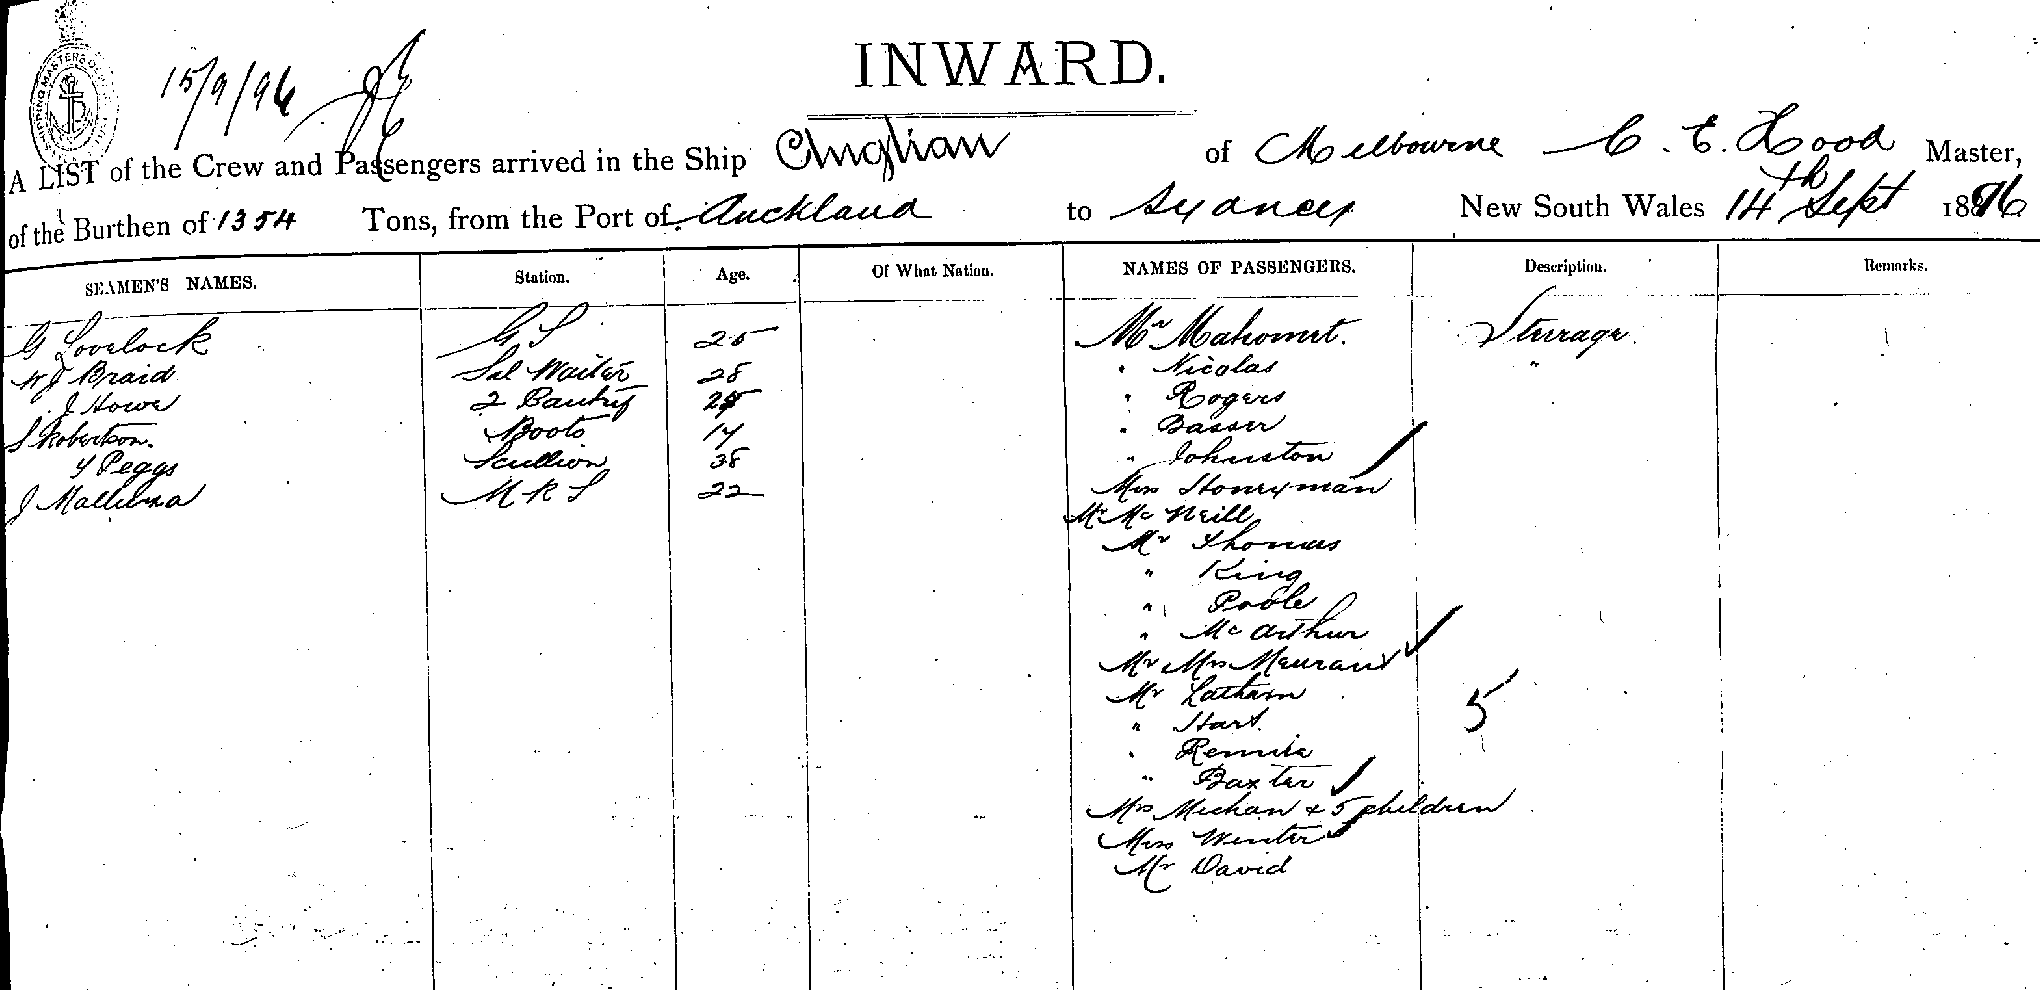 15/9/96
INWARD.
A LIST of the Crew and Passengers arrived in the Ship Anglian of Melbourne C. E. Hood Master,
of the Burthen of 1354 Tons, from the Port of Auckland to Sydney New South Wales 14th Sept 1896
SEAMEN'S NAMES. Station. Age. Of What Nation. NAMES OF PASSENGERS. Description. Remarks.
G Lovelock G S 25 Mr Mahomet. Steerage
W J Braid Sal Waiter 28 " Nicolas "
J Howe 2 Pantry " Rogers
S Robertson. Boots 17 " Basser
Y Peggs Scullion 38 " Johnston
J M R S 22 Miss Honeyman
Mr Mc Neill
Mr Thomas
" King
" Poole
" Mc Arthur
Mr Mrs Meurant
Mr Latham
" Hart. 5
" Rennie
" Baxter
Mrs Meehan & 5 children
Miss Winter
Mr David